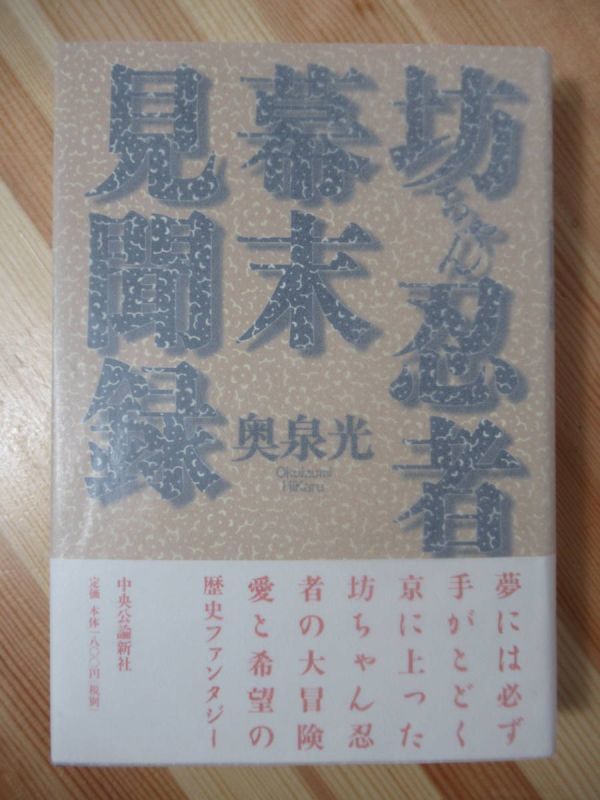 坊ちゃん忍者
幕末
見聞録
奥泉光
Okuizumi
Hikaru
夢には必ず
手がとどく
京に上った
坊ちゃん忍
者の大冒険
愛と希望の
歴史ファンタジー
中央公論新社
定価 本体一八〇〇円（税別）